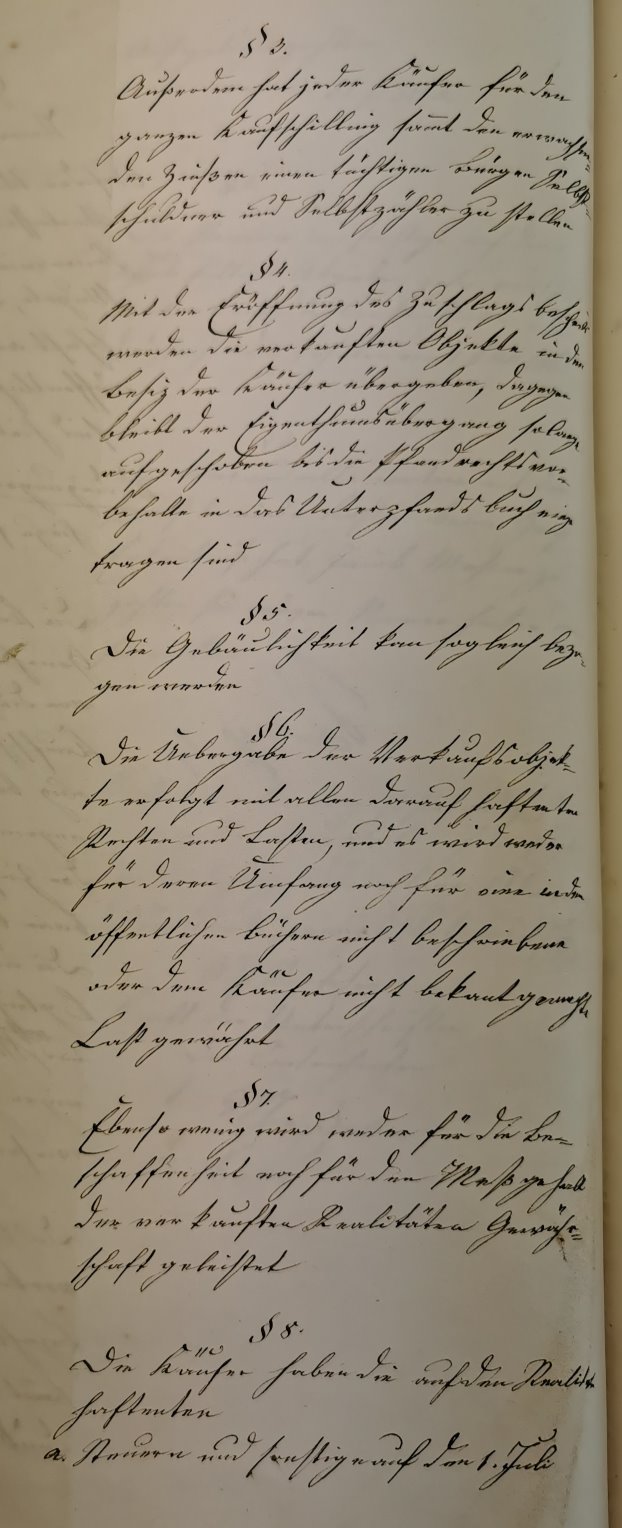 § 3.
Außerdem hat jeder Käufer für den
ganzen Kaufschilling sammt den erwachsen-
den Zinßen einen tüchtigen Bürgen Selbst-
schuldner und Selbstzähler zu stellen
§ 4.
Mit der Eröffnung des Zuschlags
werden die verkauften Objekte in den
Besiz der Käufer übergeben, dagegen
bleibt der Eigenthumsübergang solange
aufgeschoben bis die Pfandrechtsvor-
behalte in das Unterpfandsbuch einge
tragen sind
§ 5.
Die Gebäulichkeit kan sogleich bezo-
gen werden
§ 6.
Die Uebergabe der Verkaufsobjek-
te erfolgt mit allen darauf haftenten
Rechten und Lasten, und es wird weder
für deren Umfang noch für eine in den
öffentlichen Büchern nicht beschriebene
oder dem Käufer nicht bekant gemachte
Last gewährt
§ 7.
Ebenso wenig wird weder für die Be-
schaffenheit noch für den Meßgehalt
der verkauften Realitäten Gewähr-
schaft geleistet
§ 8.
Die Käufer haben die auf den
haftenten
a. Steuern und sonstige auf den 1. Juli